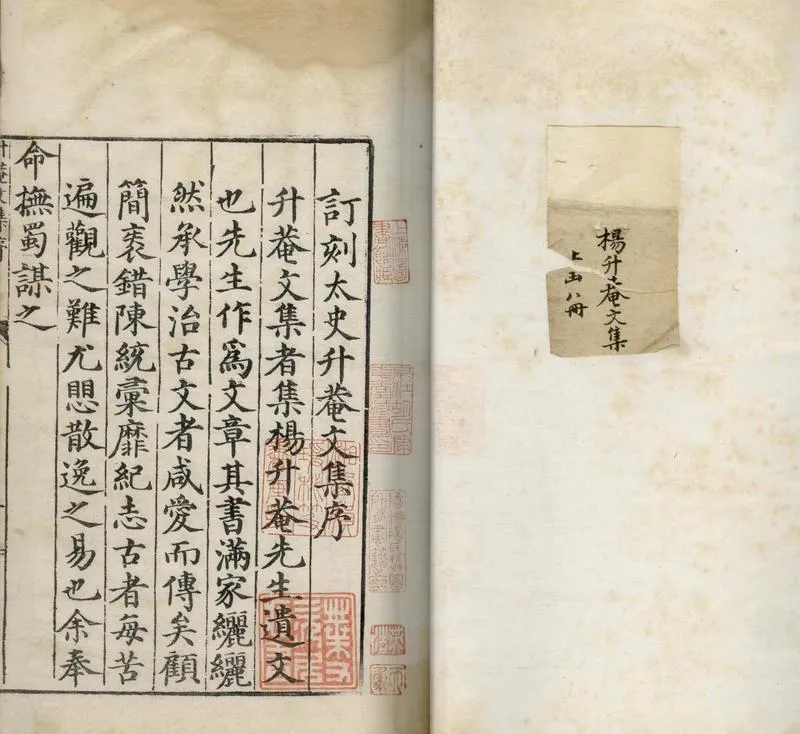 楊升菴文集
上函八冊
上海圖書館藏
訂刻太史升菴文集序
升菴文集者集楊升菴先生遺文
也先生作爲文章其書滿家纚纚
然承學治古文者咸愛而傳矣顧
簡袠錯陳統彙靡紀志古者每苦
遍觀之難尤愳散逸之易也余奉
命撫蜀謀之
升菴文集序